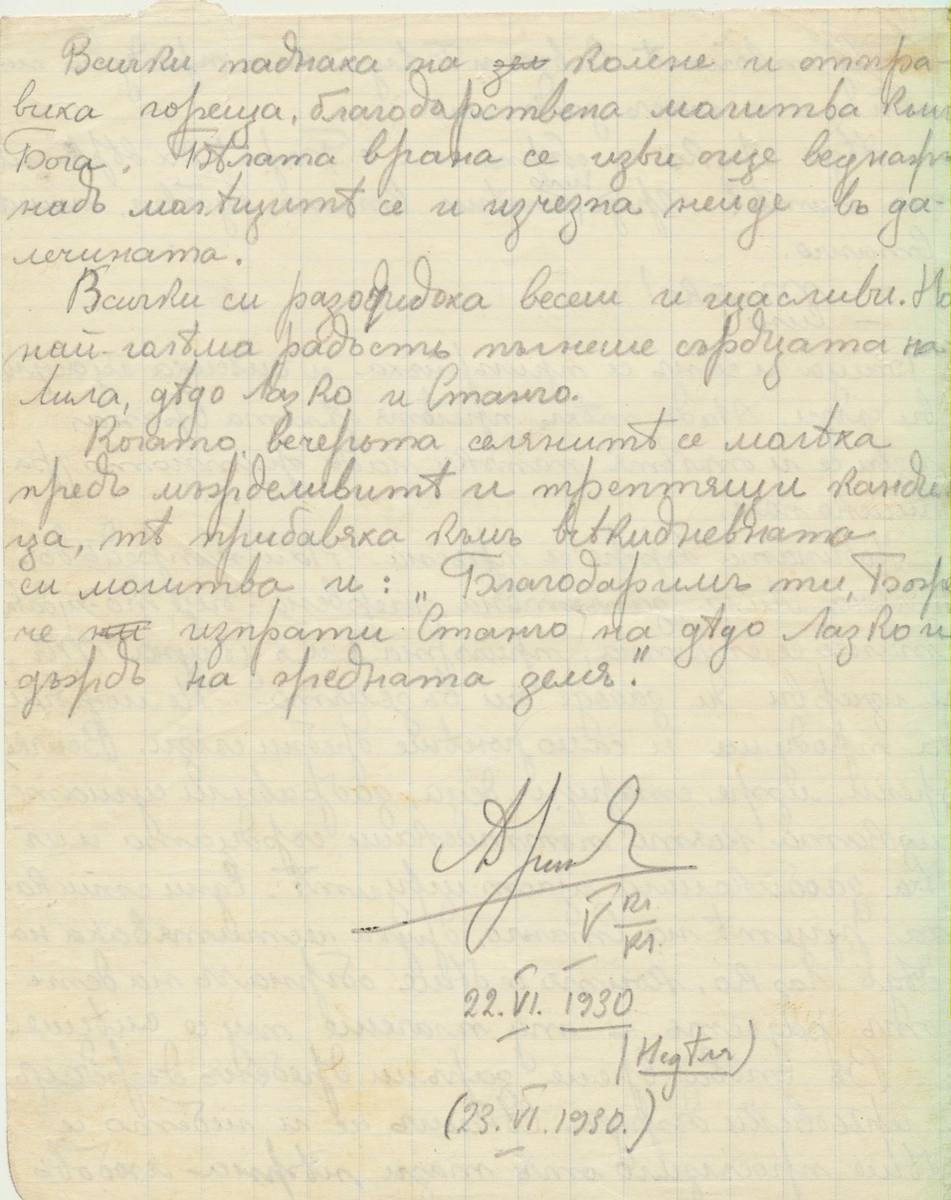 Всички паднаха на зем колене и отпра-
виха гореща, благодарствена молитва към
Бога. Бѣлата врана се изви още веднаж
надъ молѣщитѣ се и изчезна нейде въ да-
лечината.
Всички си разотидоха весели и щасливи. Но
най-голѣма радость пълнеше сърдцата на
Лила, дѣдо Лазко и Станчо.
Когато вечерьта селянитѣ се молѣха
предъ мърделивитѣ и трептящи канди-
ца, тѣ прибавяха къмъ всѣкидневната
си молитва и: „Благодаримъ ти, Боже
че ни изпрати Станчо на дѣдо Лазко и
дъждъ на жедната земя."
V кл.
22. VI. 1930
(Недѣля)
(23. VI. 1930.)